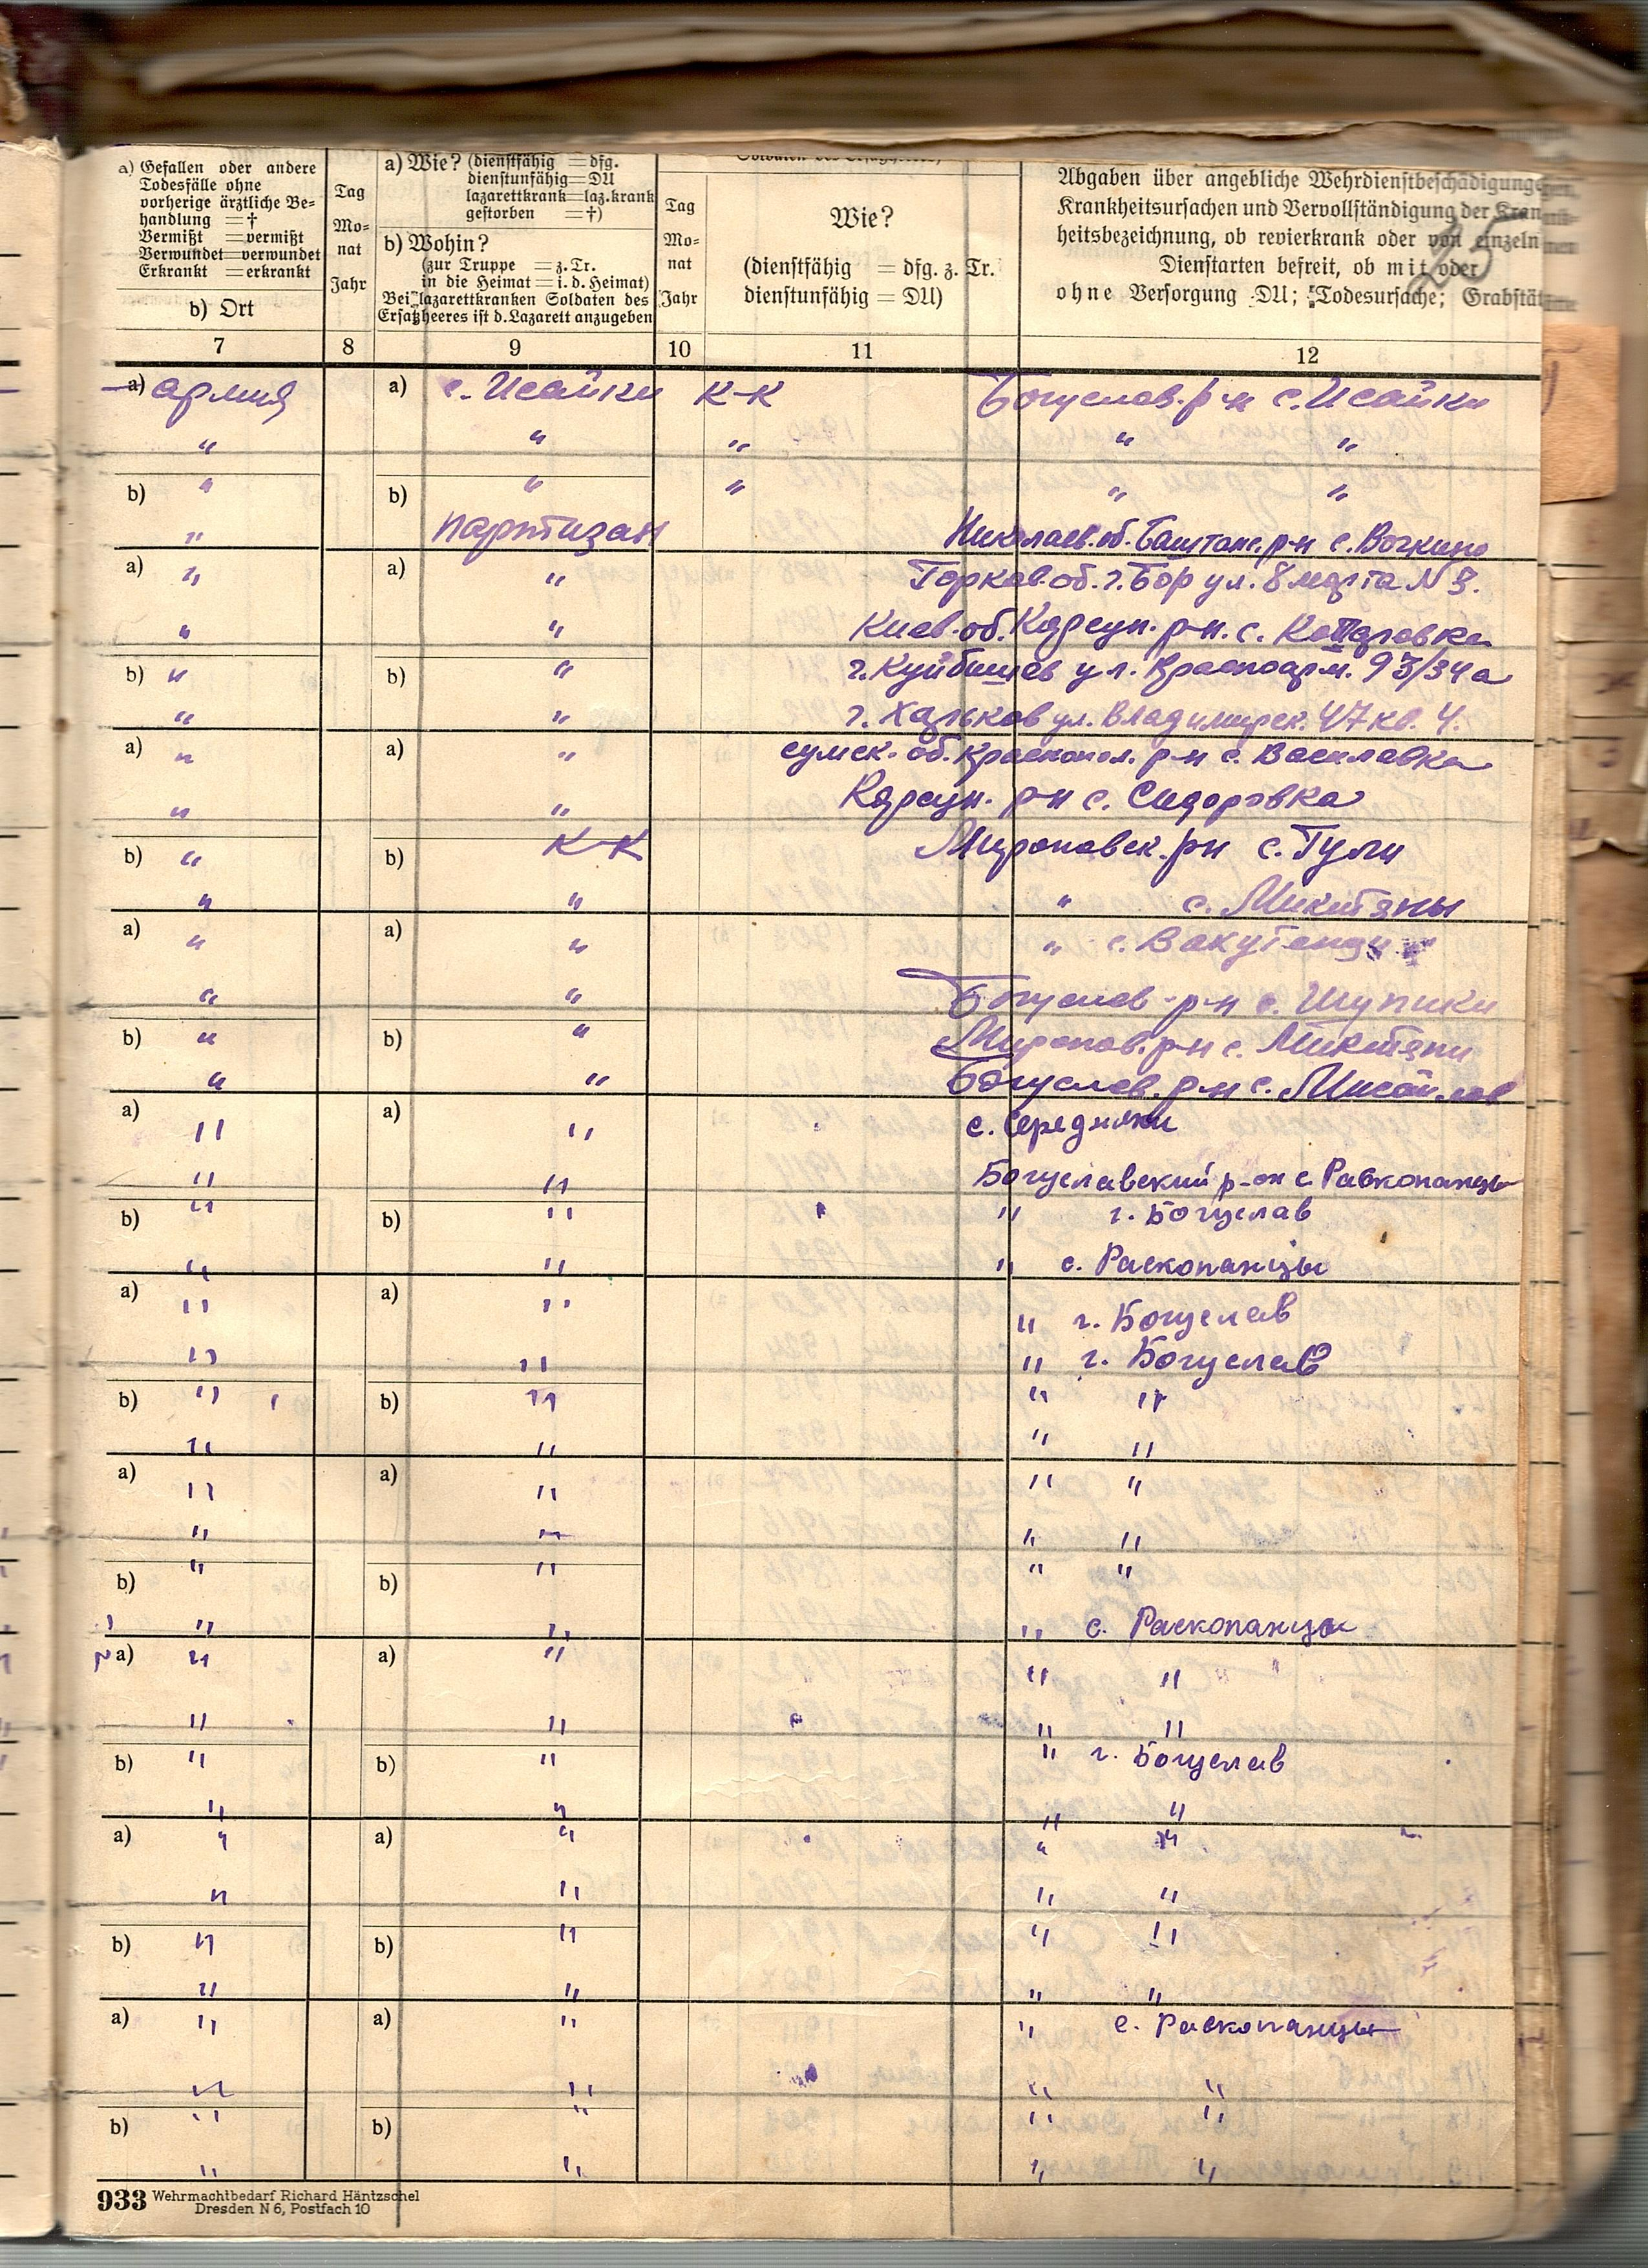 a) Gefallen oder andere
Todesfälle ohne
vorherige ärztliche Be=
handlung =†
Vermißt =vermißt
Verwundet=verwundet
Erkrankt =erkrankt
b) Ort
Tag
Mo=
nat
Jahr
a) Wie? (dienstfähig =dfg.
dienstunfähig=DU
lazarettkrank=laz.krank
gestorben =†)
b) Wohin?
(zur Truppe =z.Tr.
in die Heimat=i.d.Heimat)
Bei lazarettkranken Soldaten des
Ersatzheeres ist d.Lazarett anzugeben
Tag
Mo=
nat
Jahr
Wie?
(dienstfähig = dfg. z. Tr.
dienstunfähig = DU)
Abgaben über angebliche Wehrdienstbeschädigung
Krankheitsursachen und Vervollständigung der Kran
heitsbezeichnung, ob revierkrank oder von einzeln
Dienstarten befreit, ob mit oder
ohne Versorgung DU; Todesursache; Grabstät
25
7 8 9 10 11 12
a) армия a) с. Исайки К-К Богуслав. р-н с. Исайки
" " " " "
b) " b) " " " "
" партизан Николаев. об. Баштанс. р-н с.
a) " a) " Горков. об. г. Бор ул. 8 марта N 3.
" " Киев. об. Корсун. р-н. с.
b) " b) " г. Куйбишев ул. Красноарм. 93/34а
" " г. Харьков ул. Владимирск. 47 кв. 4.
a) " a) " сумск. об. Краснопол. р-н с. Василавка
" " Корсун. р-н с. Сидоровка
b) " b) К-К Мироновск. р-н с. Тули
" " " с. Микитяны
a) " a) " " с.
" " Богуслав р-н с. Шупики
b) " b) " Миронов. р-н с. Микитяни
" " Богуслав. р-н с. Мисайлов
a) " a) " с. Середняки
" " Богуславский р-он с Расконанцы
b) " b) " " г. Богуслав
" " " с. Расконанцы
a) " a) " " г. Богуслав
" " " г. Богуслав
b) " b) " " "
" " " "
a) " a) " " "
" " " "
b) " b) " " "
" " " с. Расконанцы
a) " a) " " "
" " " "
b) " b) " " г. Богуслав
" " " "
a) " a) " " "
" " " "
b) " b) " " "
" " " "
a) " a) " " с. Расконанцы
" " " "
b) " b) " " "
" " " "
933 Wehrmachtbedarf Richard Häntzschel
Dresden N 6, Postfach 10